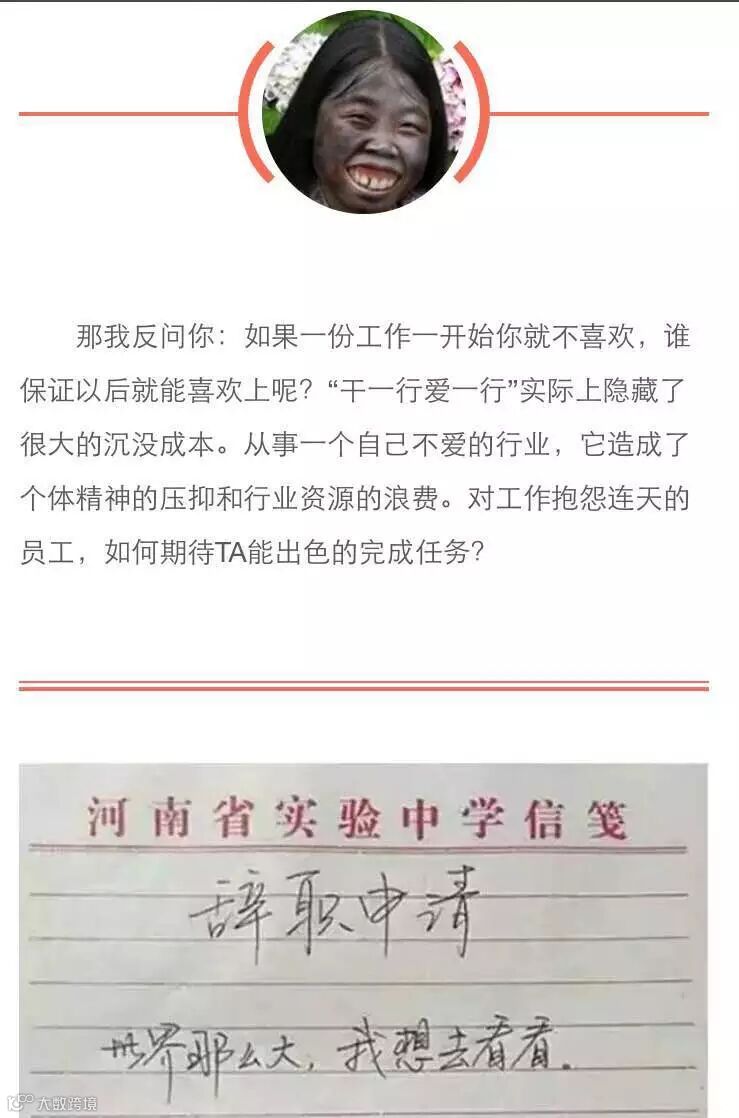 那我反问你：如果一份工作一开始你就不喜欢，谁
保证以后就能喜欢上呢？“干一行爱一行”实际上隐藏了
很大的沉没成本。从事一个自己不爱的行业，它造成了
个体精神的压抑和行业资源的浪费。对工作抱怨连天的
员工，如何期待TA能出色的完成任务？
河南省实验中学信笺
辞职申请
世界那么大，我想去看看。
大数跨境